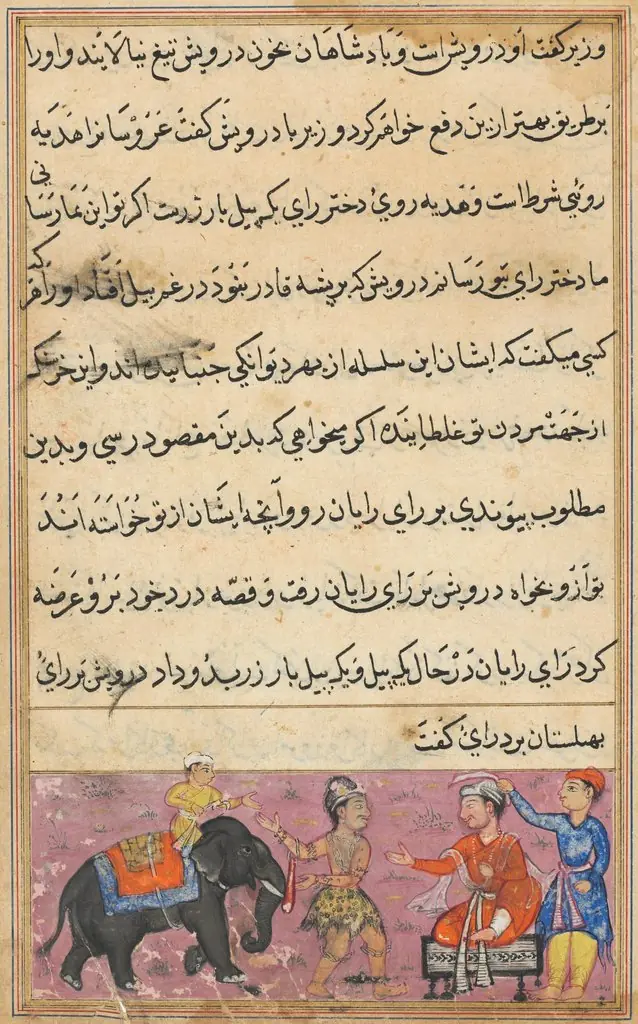 وزیر گفت او درویش است وَ پادشاهان بخون درویش تیغ نیالایند و اورا
بَر طریق بهتر ازینَ دفع خواهم کرد وزیر با درویش گفتَ عَرَوْسَانرا هَدیه
روئی شرط است وَ هَدیه رویُ دختر رای یک پیل بار زرست اگر تو این بَمَا رَسَانی
ما دختر رای بتو رَسَانم درویش که بر پشه قادر نَبُودَ در غم پیل اُفتَاد اورا هر که
کسی میکفت که ایشان این سلسله از بهر دیوانکی جنبانیده اند و این خرسنک
از جَهَتْ مردن تو غلطاینَده اکر میخواهی که بدینَ مقصود رسی و بدین
مطلوب پیوندی بر رای رایان رو و آنچه ایشان از تو خُوَاستَه اَنْدَ
تو اَزو بخواه درویش بَر رَای رایان رفت وَ قصّه درد خود بَرُوْ عَرَضَه
کرد رَای رایان دَرْ حَال یک پیل وَ یک پیل بار زر بدُو داد درویش بَر رایُ
بهلستان برد رایُ کُفتَ